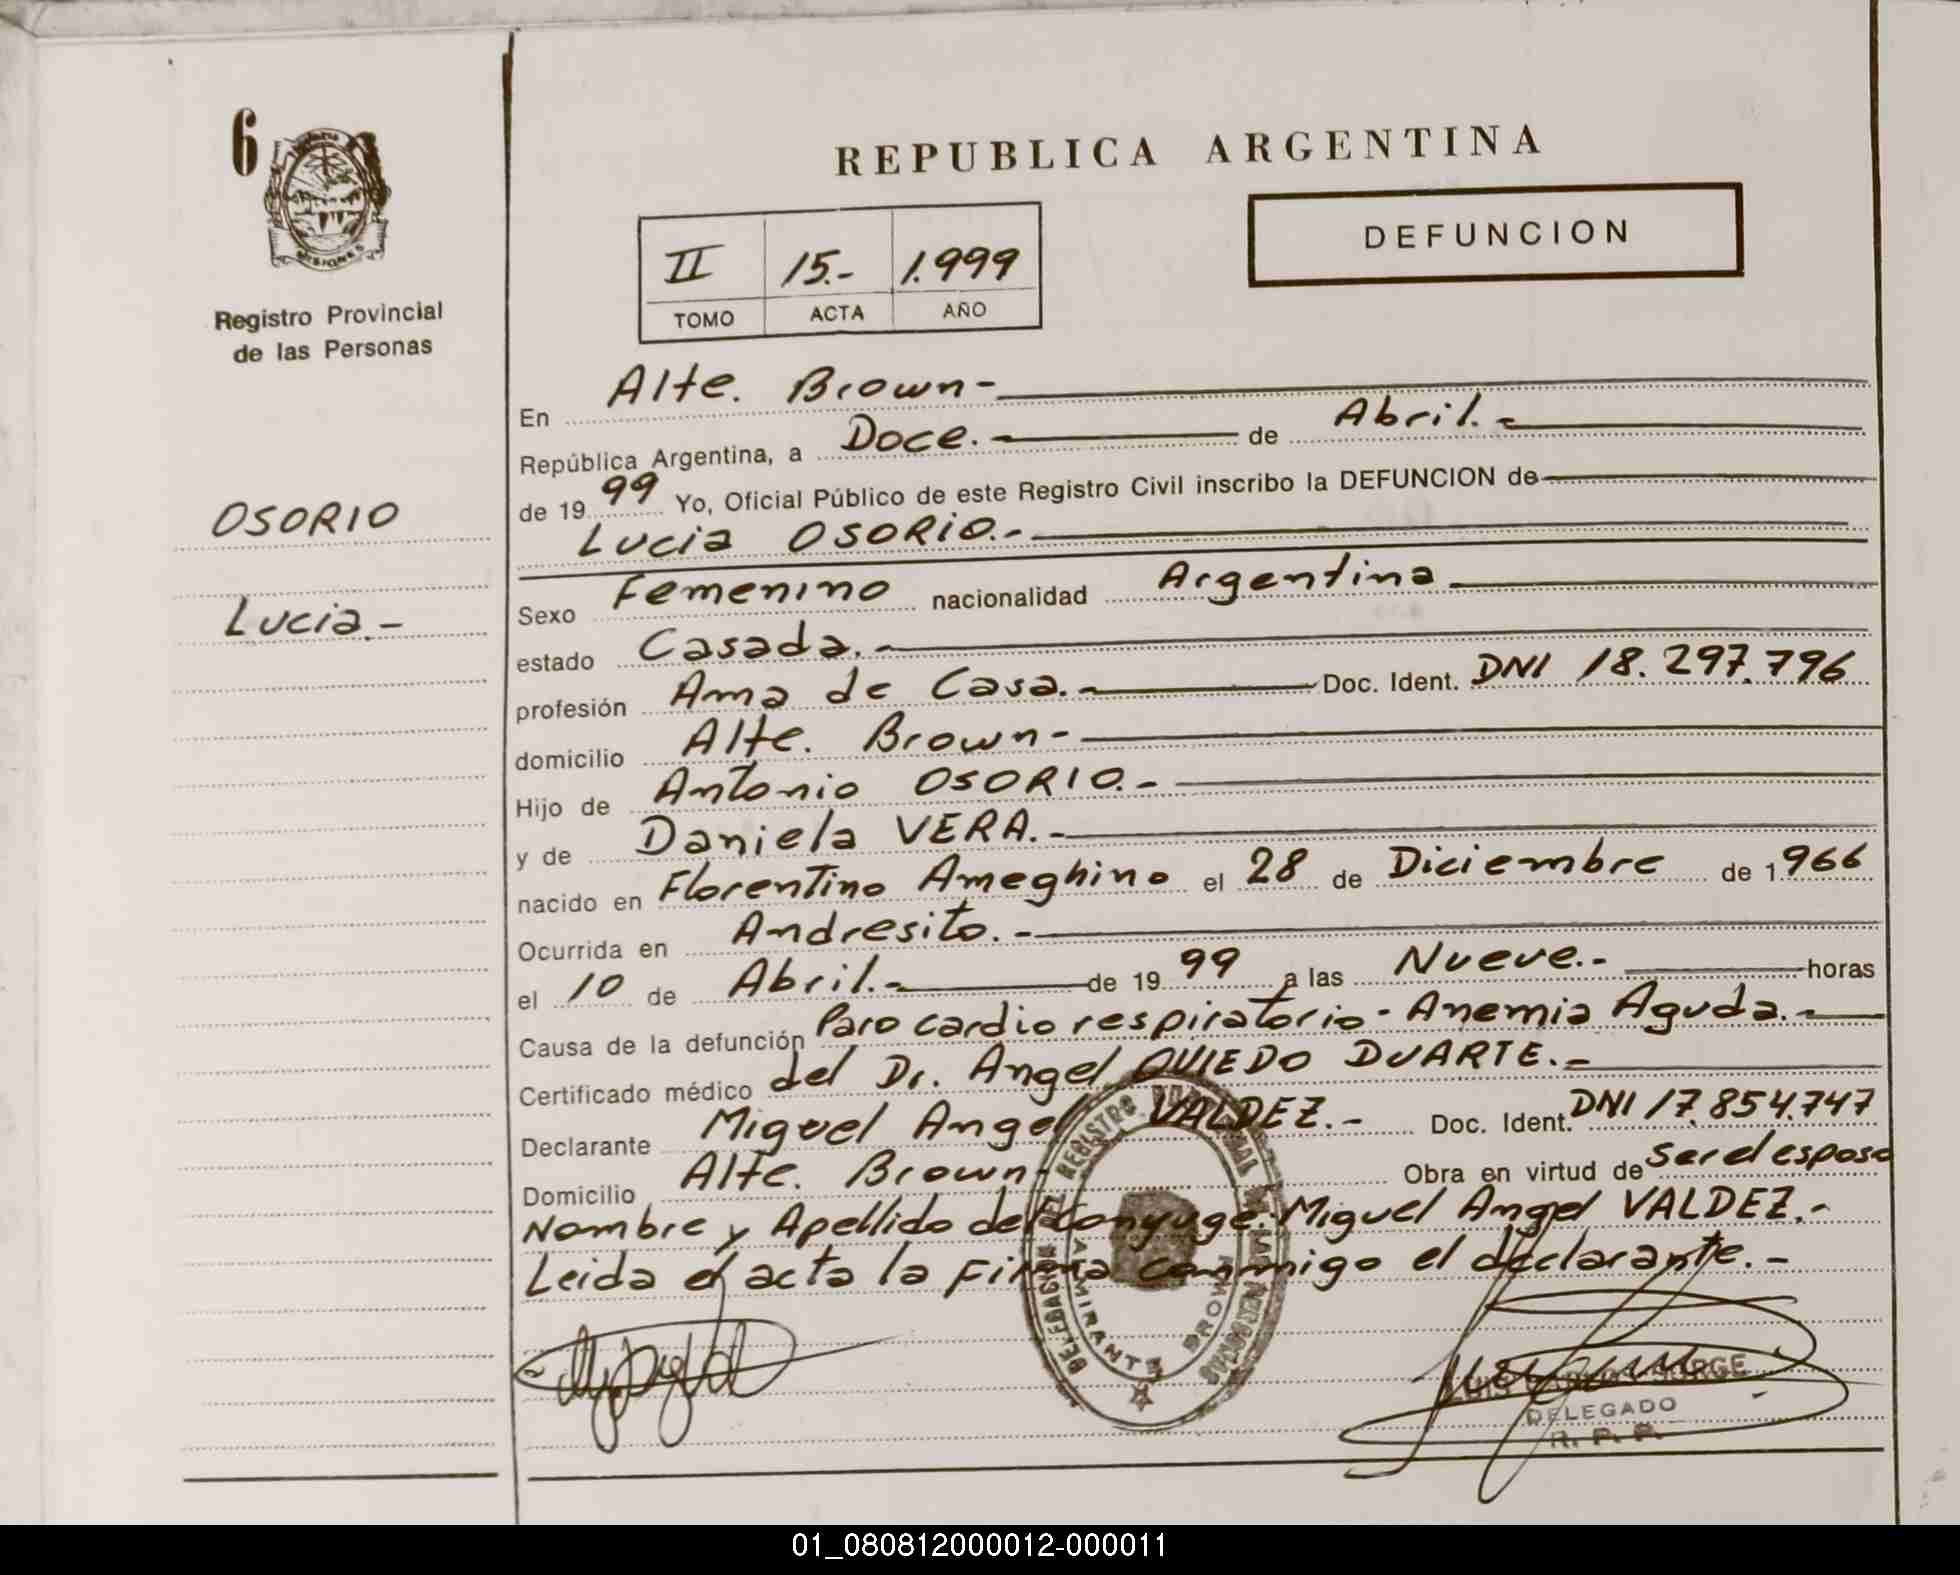 6
MISIONES
Registro Provincial
de las Personas
OSORIO
Lucia.-
REPUBLICA ARGENTINA
DEFUNCION
II 15.- 1.999
TOMO ACTA AÑO
En Alte. Brown-
República Argentina, a Doce.- de Abril.-
de 1999 Yo, Oficial Público de este Registro Civil inscribo la DEFUNCION de
Lucia OSORIO.-
Sexo Femenino nacionalidad Argentina.
estado Casada.-
profesión Ama de Casa.- Doc. Ident. DNI 18.297.796
domicilio Alte. Brown-
Hijo de Antonio OSORIO.-
y de Daniela VERA.-
nacido en Florentino Ameghino el 28 de Diciembre de 1966
Ocurrida en Andresito.-
el 10 de Abril.- de 1999 a las Nueve.- horas
Causa de la defunción Paro cardio respiratorio - Anemia Aguda.-
Certificado médico del Dr. Angel OVIEDO DUARTE.-
Declarante Miguel Angel VALDEZ.- Doc. Ident. DNI 17.854.747
Domicilio Alte. Brown- Obra en virtud de Ser el esposo
Nombre y Apellido del Conyuge: Miguel Angel VALDEZ.-
Leida el acta la Firma conmigo el declarante.-
DELEGACION DEL REGISTRO PROVINCIAL
ALMIRANTE BROWN
LUIS JORGE
DELEGADO
R. P. P.
01_080812000012-000011